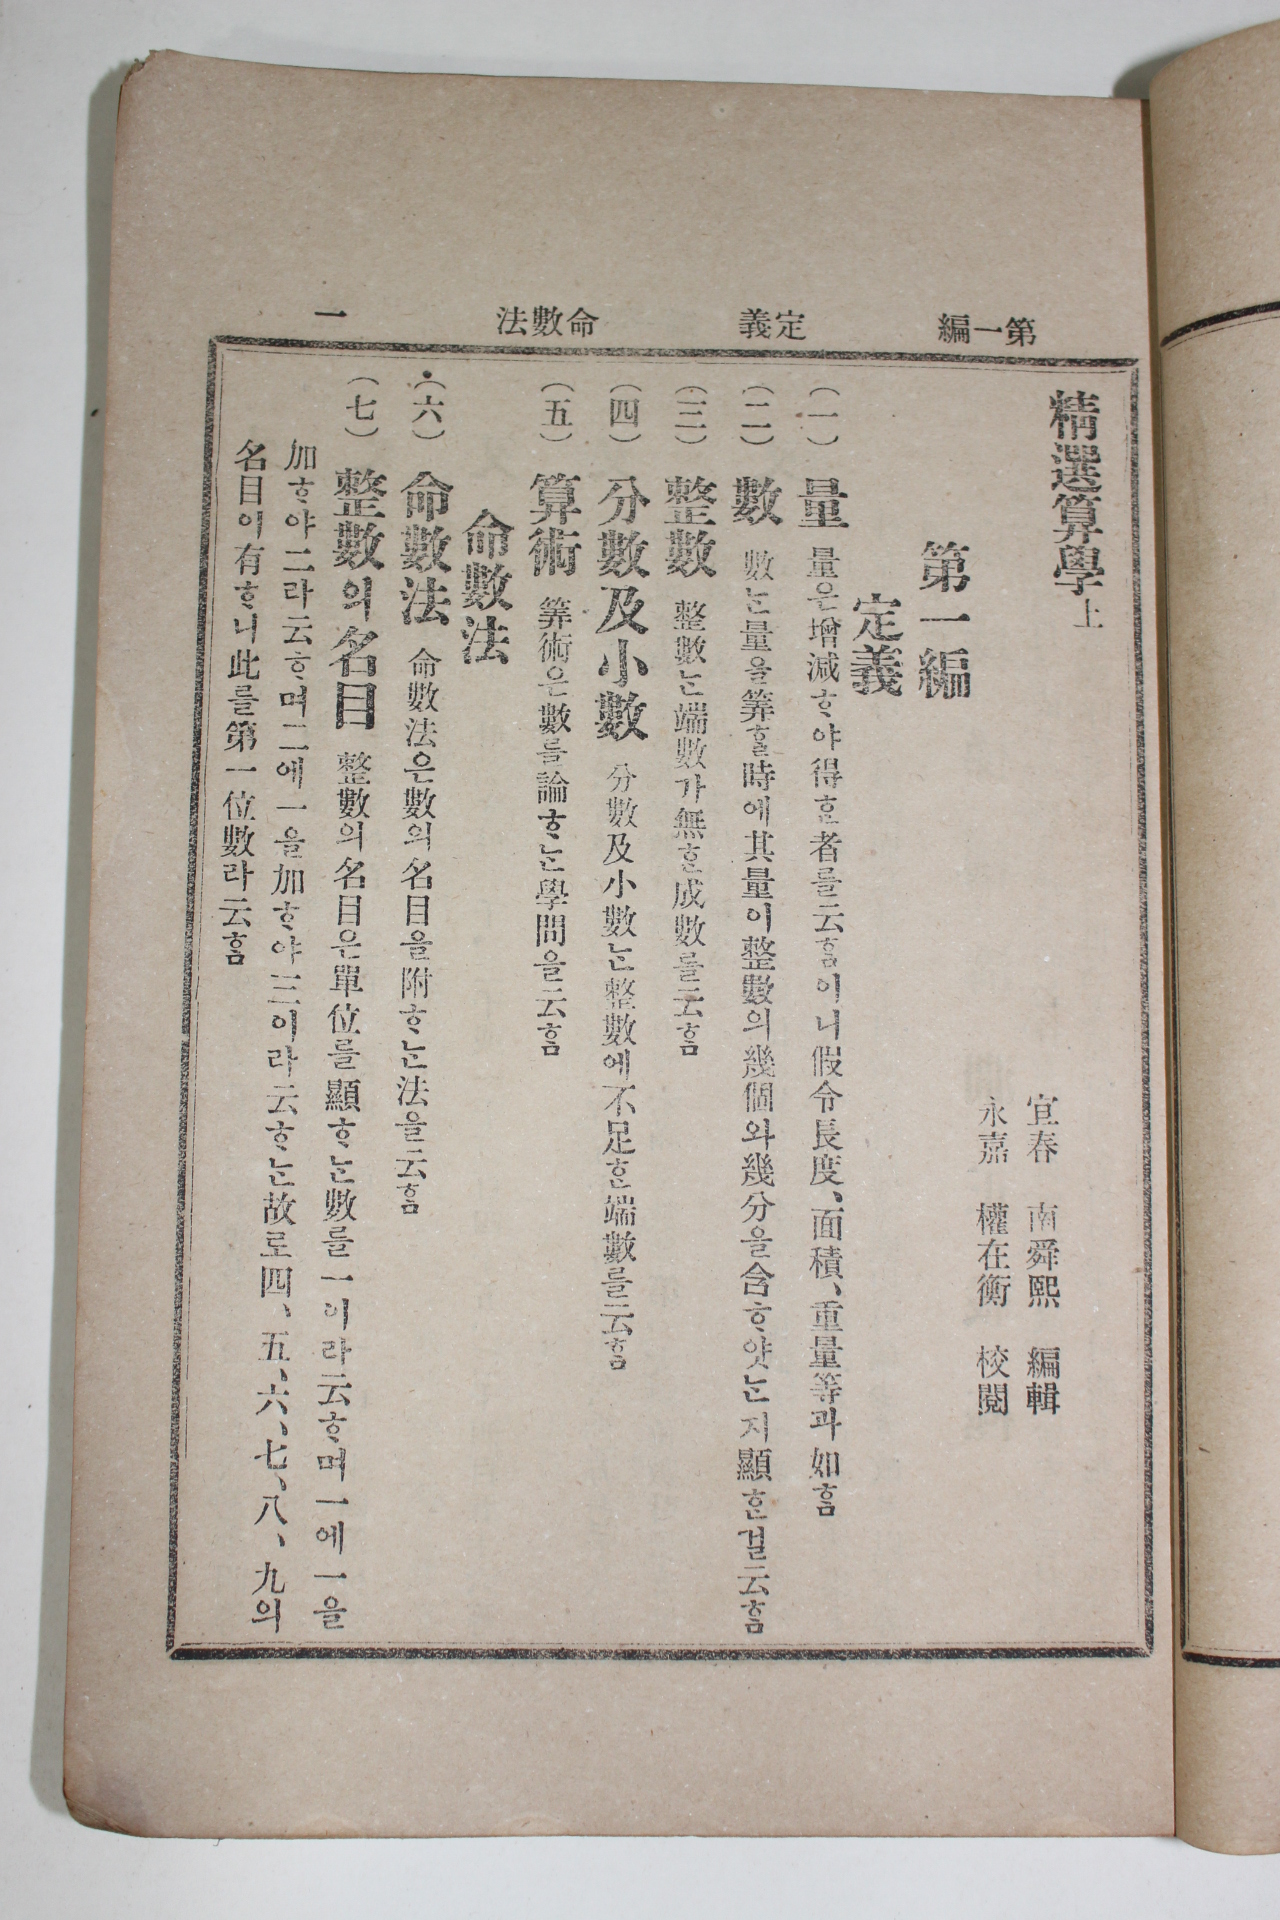 第一編 定義 命數法 一
精選算學上
宜春 南舜熙 編輯
永嘉 權在衡 校閱
第一編
定義
(一) 量 量은增減ᄒᆞ야得ᄒᆞᆫ者를云ᄒᆞᆷ이니假令長度、面積、重量等과如ᄒᆞᆷ
(二) 數 數ᄂᆞᆫ量을筭ᄒᆞᆯ時에其量이整數의幾個와幾分을含ᄒᆞ얏ᄂᆞᆫ지顯ᄒᆞᆫ걸云ᄒᆞᆷ
(三) 整數 整數ᄂᆞᆫ端數가無ᄒᆞᆫ成數를云ᄒᆞᆷ
(四) 分數及小數 分數及小數ᄂᆞᆫ整數에不足ᄒᆞᆫ端數를云ᄒᆞᆷ
(五) 算術 筭術은數를論ᄒᆞᄂᆞᆫ學問을云ᄒᆞᆷ
命數法
(六) 命數法 命數法은數의名目을附ᄒᆞᄂᆞᆫ法을云ᄒᆞᆷ
(七) 整數의名目 整數의名目은單位를顯ᄒᆞᄂᆞᆫ數를一이라云ᄒᆞ며一에一을
加ᄒᆞ야二라云ᄒᆞ며二에一을加ᄒᆞ야三이라云ᄒᆞᄂᆞᆫ故로四、五、六、七、八、九의
名目이有ᄒᆞ니此를第一位數라云ᄒᆞᆷ